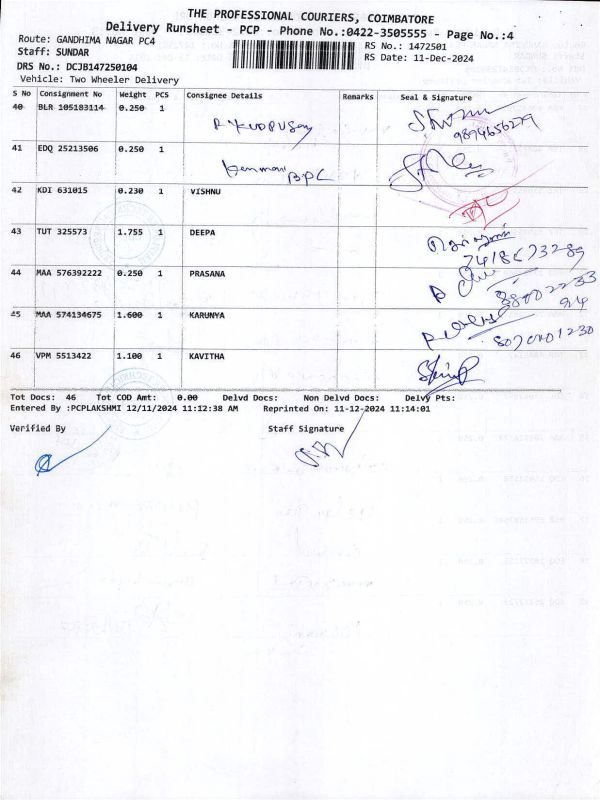 THE PROFESSIONAL COURIERS, COIMBATORE
Delivery Runsheet - PCP - Phone No.:0422-3505555 - Page No.:4
Route: GANDHIMA NAGAR PC4 RS No.: 1472501
Staff: SUNDAR RS Date: 11-Dec-2024
DRS No.: DCJB147250104
Vehicle: Two Wheeler Delivery
S No Consignment No Weight PCS Consignee Details Remarks Seal & Signature
40 BLR 105183114 0.250 1
9894656279
41 EDQ 25213506 0.250 1
BPC
42 KDI 631015 0.230 1 VISHNU
43 TUT 325573 1.755 1 DEEPA
7418673289
44 MAA 576392222 0.250 1 PRASANA
45 MAA 574134675 1.600 1 KARUNYA
46 VPM 5513422 1.100 1 KAVITHA
Tot Docs: 46 Tot COD Amt: 0.00 Delvd Docs: Non Delvd Docs: Delvy Pts:
Entered By :PCPLAKSHMI 12/11/2024 11:12:38 AM Reprinted On: 11-12-2024 11:14:01
Verified By Staff Signature